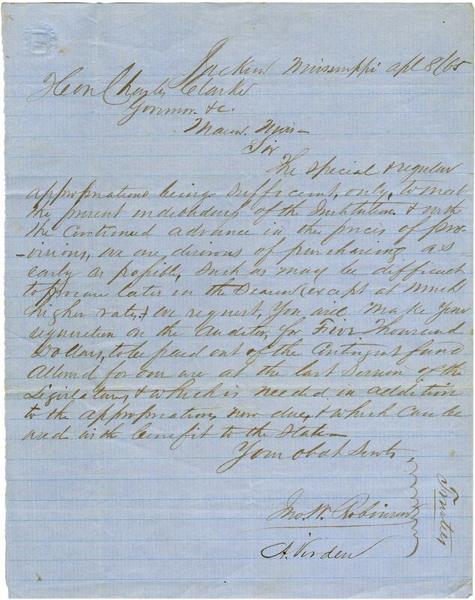 Jackson Mississippi Apl 8/65
Hon Charles Clarke
Governor &c.
Macon, Miss—
Sir
The special & regular
appropriations being sufficient, only, to meet
the present indebtedness of the Institution & with
the continued advance in the prices of pro-
-visions, we are desirous of purchasing as
early as possible, such as may be difficult
to procure later in the Season (except at much
higher rates, & we request, You will make your
requisition on the Auditor, for Five thousand
Dollars, to be paid out of the Contingent fund
allowed for our use at the last Session of the
Legislature, & which is needed in addition
to the appropriations now due, & which can be
used with benefit to the State—
Your obdt Servts
Jno. W. Robinson
A. Virden
Trustees